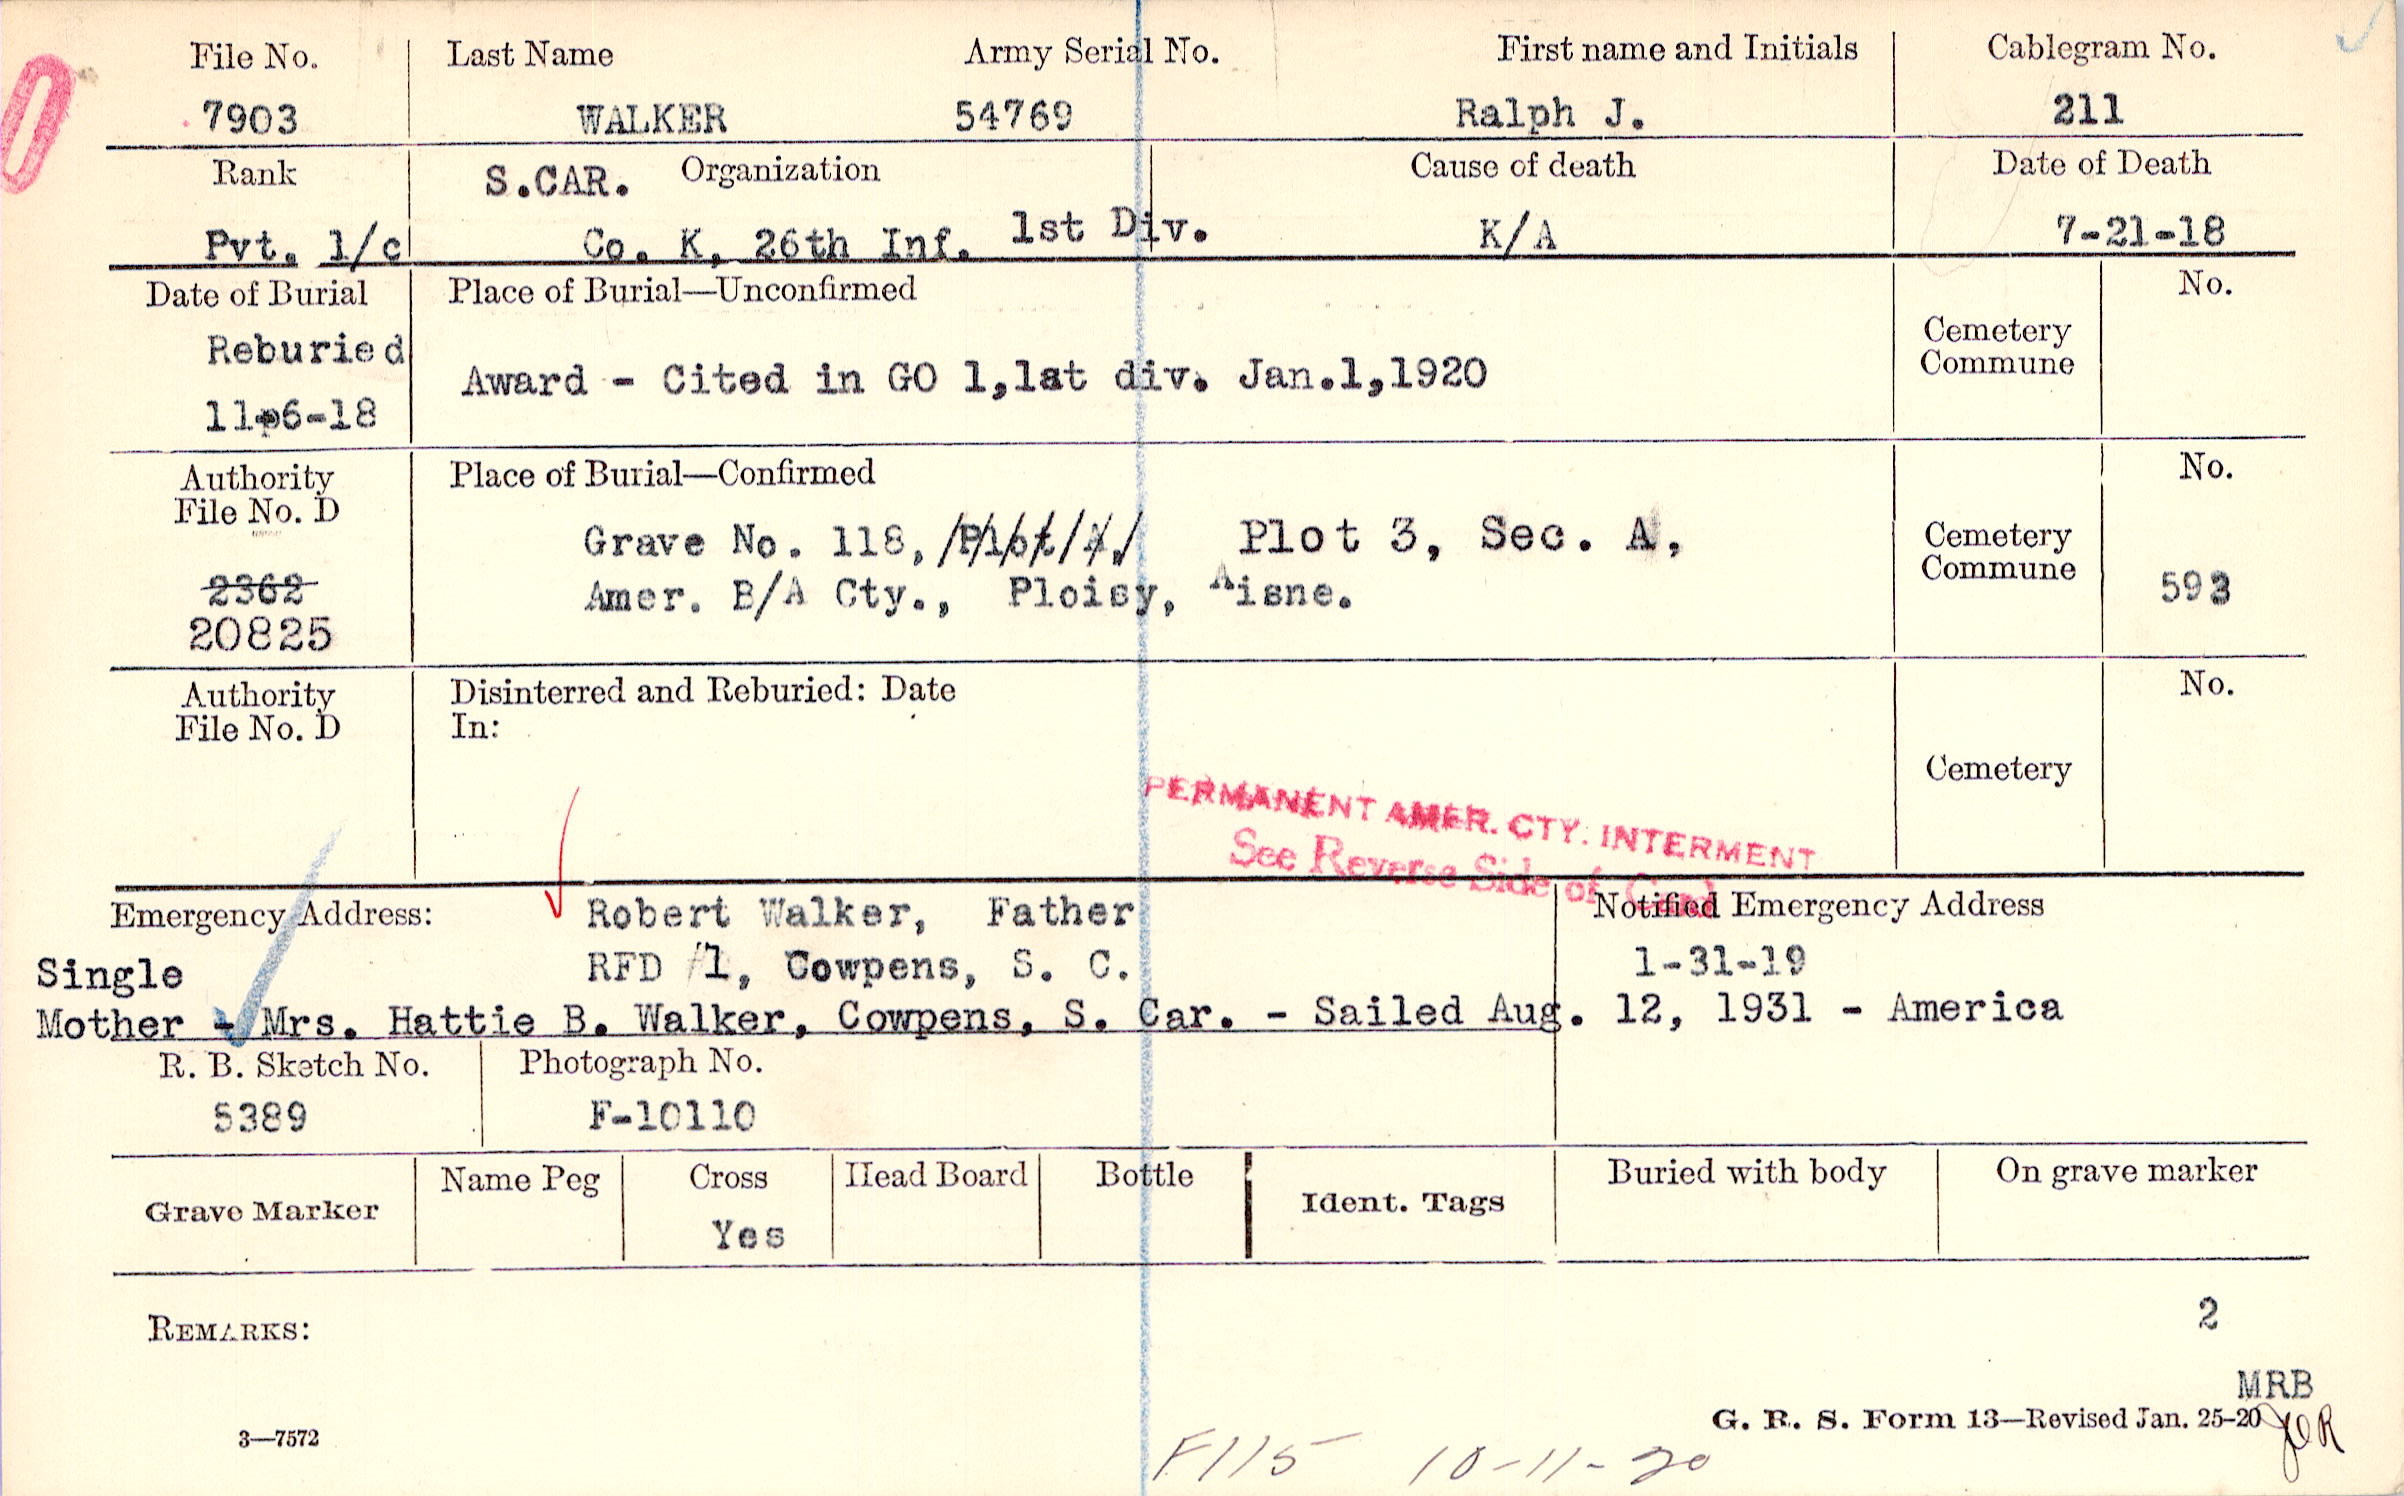 File No. Last Name Army Serial No. First name and Initials Cablegram No.
7903 WALKER 54769 Ralph J. 211
Rank S.CAR. Organization Cause of death Date of Death
Pvt. 1/c Co. K, 26th Inf. 1st Div. K/A 7-21-18
Date of Burial Place of Burial—Unconfirmed No.
Reburied Cemetery
Commune
Award - Cited in GO 1,1st div. Jan.1,1920
11-6-18
Authority Place of Burial—Confirmed No.
File No. D
Grave No. 118, Plot A, Plot 3, Sec. A, Cemetery
Commune
2362 Amer. B/A Cty., Ploisy, Aisne. 593
20825
Authority Disinterred and Reburied: Date No.
File No. D In:
Cemetery
PERMANENT AMER. CTY. INTERMENT
See Reverse Side of Card
Emergency Address: Robert Walker, Father Notified Emergency Address
Single RFD #1, Cowpens, S. C. 1-31-19
Mother - Mrs. Hattie B. Walker, Cowpens, S. Car. - Sailed Aug. 12, 1931 - America
R. B. Sketch No. Photograph No.
5389 F-10110
Grave Marker Name Peg Cross Head Board Bottle Ident. Tags Buried with body On grave marker
Yes
REMARKS: 2
MRB
G. R. S. Form 13—Revised Jan. 25-20
3—7572
F115 10-11-20